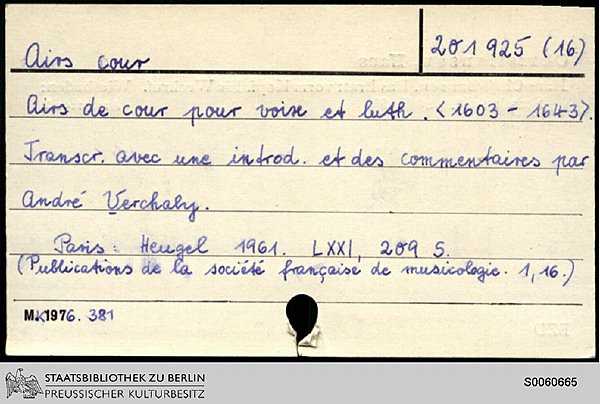 Airs cour
201 925 (16)
Airs de cour pour voix et luth. <1603 - 1643>.
Transcr. avec une introd. et des commentaires par
André Verchaly.
Paris: Heugel 1961. LXXI, 209 S.
(Publications de la société française de musicologie. 1,16.)
M.1976. 381
STAATSBIBLIOTHEK ZU BERLIN
PREUSSISCHER KULTURBESITZ
S0060665